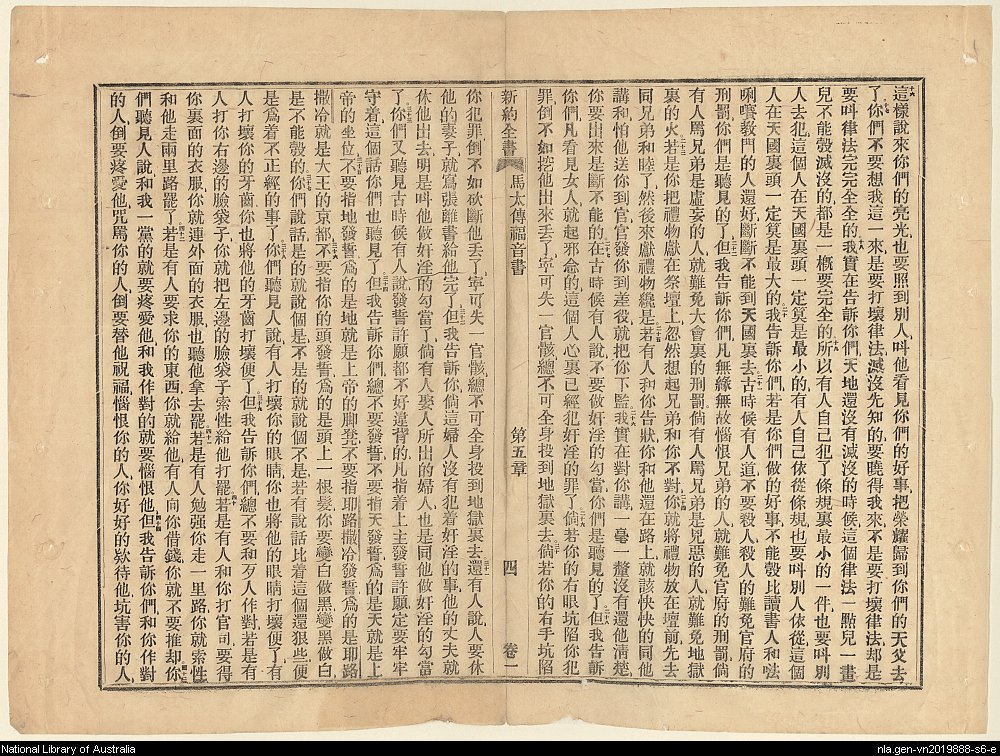 這樣說來你們的亮光也要照到別人叫他看見你們的好事把榮耀歸到你們的天父去
了你們不要想我這一來是要打壞律法滅沒先知的要曉得我來不是要打壞律法却是
要叫律法完完全全的我實在告訴你們天地還沒有滅沒的時候這個律法一點兒一畫
兒不能彀滅沒的都是一槪要完全的所以有人自己犯了條規裏最小的一件也要叫別
人去犯這個人在天國裏頭一定算是最小的有人自己依從條規也要叫別人依從這個
人在天國裏頭一定算是最大的我告訴你們若是你們做的好事不能彀比讀書人和𠵽
唎㘔教門的人還好斷斷不能到天國裏去古時候有人道不要殺人殺人的難免官府的
刑罰你們是聽見的了但我告訴你們凡無緣無故惱恨兄弟的人就難免官府的刑罰倘
有人罵兄弟是虛妄的人就難免大會裏的刑罰倘有人罵兄弟是兇惡的人就難免地獄
裏的火若是你把禮物獻在祭壇上忽然想起兄弟和你不對你就將禮物放在壇前先去
同兄弟和睦了然後來獻禮物纔是若有人和你告狀你和他還在路上就該快快的同他
講和怕他送你到官官發你到差役就把你下監我實在對你講一毫一釐沒有還他淸楚
你要出來是斷不能的在古時候有人說不要做奸淫的勾當你們是聽見的了但我告訴
你們凡看見女人就起邪念的這個人心裏已經犯奸淫的罪了倘若你的右眼坑陷你犯
罪倒不如挖他出來丟了寧可失一官骸總不可全身投到地獄裏去倘若你的右手坑陷
新約全書 馬太傳福音書 第五章 四 卷一
你犯罪倒不如砍斷他丟了寧可失一官骸總不可全身投到地獄裏去還有人說人要休
他的妻子就寫張離書給他完了但我告訴你倘這婦人沒有犯着奸淫的事他的丈夫就
休他出去明是叫他做奸淫的勾當了倘有人娶人所出的婦人也是同他做奸淫的勾當
了你們又聽見古時候有人說發誓許願都不好違背的凡指着上主發誓許願定要牢牢
守着這個話你們也聽見了但我告訴你們總不要發誓不要指天發誓爲的是天就是上
帝的坐位不要指地發誓爲的是地就是上帝的脚凳不要指耶路撒冷發誓爲的是耶路
撒冷就是大王的京都不要指你的頭發誓爲的是頭上一根髮你要變白做黑變黑做白
是不能彀的你們說話是的就說個是不是的就說個不是若有說話比着這個還狠些便
是爲着不正經的事了你們聽見人說有人打壞你的眼睛你也將他的眼睛打壞便了有
人打壞你的牙齒你也將他的牙齒打壞便了但我告訴你們總不要和歹人作對若是有
人打你右邊的臉袋子你就把左邊的臉袋子索性給他打罷若是有人和你打官司要得
你裏面的衣服你就連外面的衣服也聽他拿去罷若是有人勉强你走一里路你就索性
和他走兩里路罷了若是有人要求你的東西你就給他有人向你借錢你就不要推却你
們聽見人說和我一黨的就要疼愛他和我作對的就要惱恨他但我告訴你們和你作對
的人倒要疼愛他咒罵你的人倒要替他祝福惱恨你的人你好好的欵待他坑害你的人
National Library of Australia
nla.gen-vn2019888-s6-e